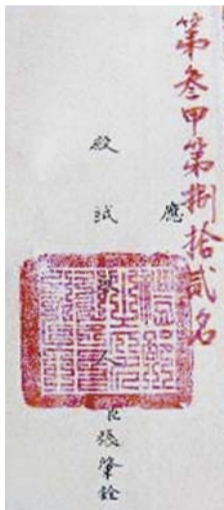 第叁甲第捌拾貳名
應
殿試舉人臣張肇銓